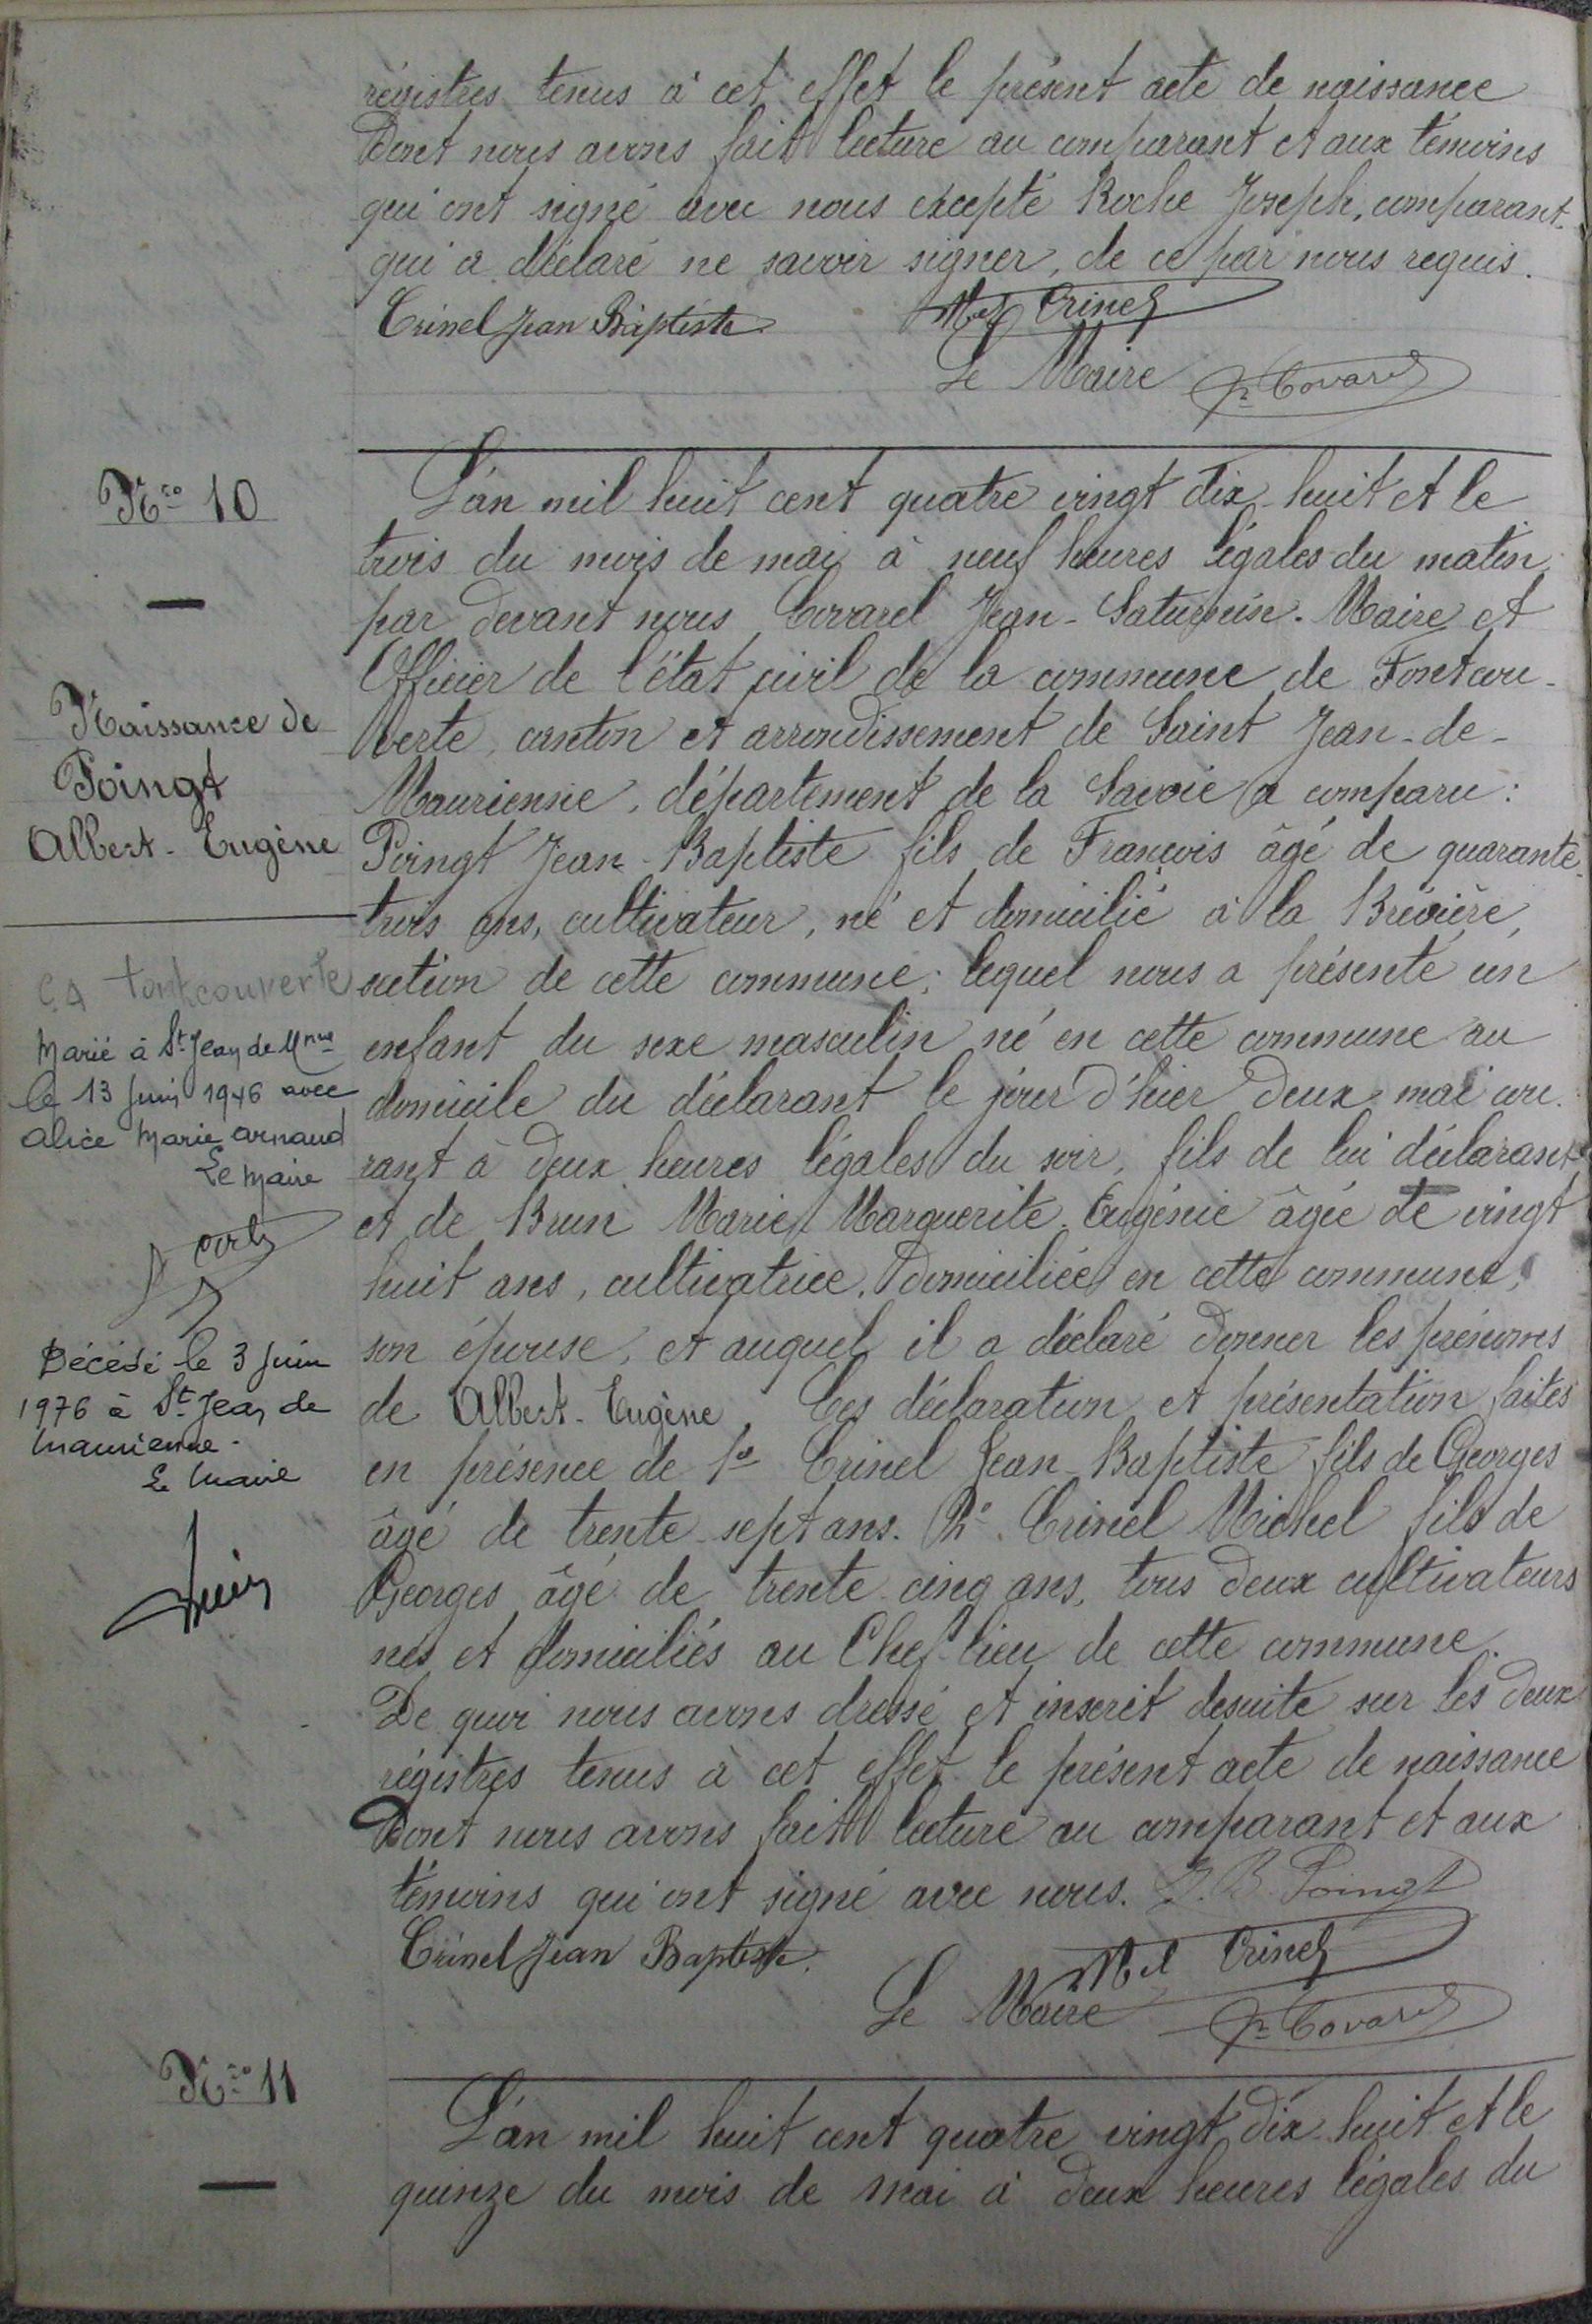 régistres tenus à cet effet le présent acte de naissance
Dont nous avons fait lecture au comparant et aux témoins
qui ont signé avec nous excepté Roche Joseph, comparant
qui a déclaré ne savoir signer, de ce par nous requis.
Crinel Jean Baptiste
Mel Crinel
Le Maire
Jn Covarel
Nro 10
Naissance de
Poingt
Albert-Eugène
L'an mil huit cent quatre vingt dix-huit et le
trois du mois de mai à neuf heures légales du matin,
par devant nous Covarel Jean-Saturnin. Maire et
Officier de l'état civil de la commune de Fontcou-
verte, canton et arrondissement de Saint Jean-de-
Maurienne, département de la Savoie a comparu :
Poingt Jean-Baptiste fils de François âgé de quarante-
trois ans, cultivateur, né et domicilié à la Brévière,
section de cette commune; lequel nous a présenté un
enfant du sexe masculin né en cette commune au
domicile du déclarant le jour d'hier deux mai cou-
rant à deux heures légales du soir, fils de lui déclarant
et de Brun Marie Marguerite Eugénie âgée de vingt
huit ans, cultivatrice, domiciliée en cette commune,
son épouse, et auquel il a déclaré donner les prénoms
de Albert-Eugène. Ces déclaration et présentation faites
en présence de 1o Crinel Jean-Baptiste fils de Georges
âgé de trente-sept ans. 2o Crinel Michel fils de
Georges âgé de trente-cinq ans, tous deux cultivateurs
nés et domiciliés au Chef-lieu de cette commune.
De quoi nous avons dressé et inscrit desuite sur les deux
régistres tenus à cet effet le présent acte de naissance
Dont nous avons fait lecture au comparant et aux
témoins qui ont signé avec nous. J. B. Poingt
Crinel Jean Baptiste.
Mel Crinel
Le Maire
Jn Covarel
Fontcouverte
Marié à St Jean de Mnne
le 13 Juin 1946 avec
Alice Marie Arnaud
Le Maire
Décédé le 3 Juin
1976 à St Jean de
Maurienne.
Le Maire
Nro 11
L'an mil huit cent quatre vingt dix-huit et le
quinze du mois de mai à deux heures légales du